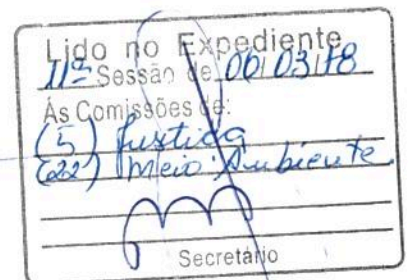 Lido no Expediente
11ª Sessão de 06/03/18
Às Comissões de:
(5) Justiça
(22) Meio Ambiente
Secretário